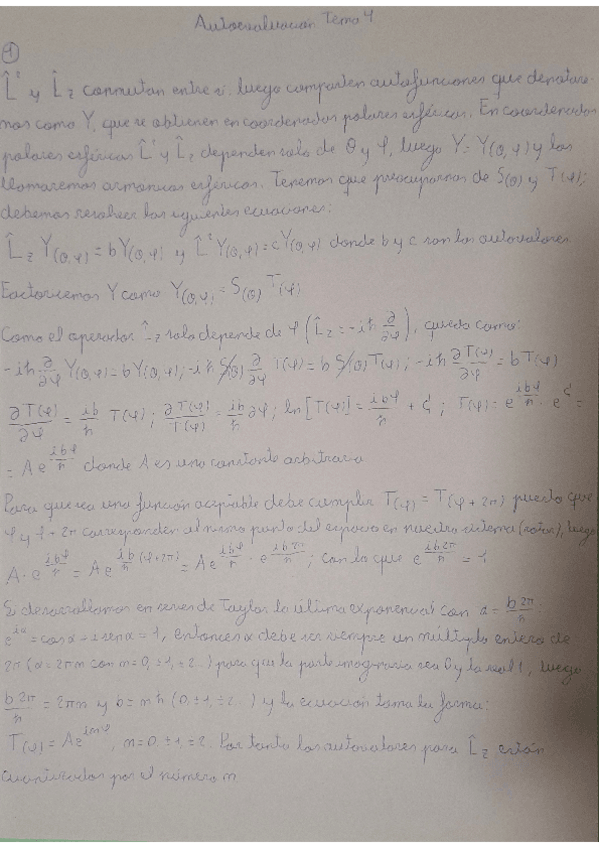 Autoevaluación Tema 4
①
L̂² y L̂z conmutan entre si, luego comparten autofunciones que denotare-
mos como Y, que se obtienen en coordenadas polares esféricas. En coordenadas
polares esféricas L̂² y L̂z dependen solo de θ y φ, luego Y = Y(θ,φ) y los
llamaremos armónicos esféricos. Tenemos que preocuparnos de S(θ) y T(φ);
debemos resolver las siguientes ecuaciones:
L̂z Y(θ,φ) = b Y(θ,φ) y L̂² Y(θ,φ) = c Y(θ,φ) donde b y c son los autovalores
Factoricemos Y como Y(θ,φ) = S(θ) T(φ)
Como el operador L̂z solo depende de φ (L̂z = -iħ ∂/∂φ), queda como:
-iħ ∂/∂φ Y(θ,φ) = b Y(θ,φ); -iħ S(θ) ∂/∂φ T(φ) = b S(θ) T(φ); -iħ ∂T(φ)/∂φ = b T(φ)
∂T(φ)/∂φ = ib/ħ T(φ); ∂T(φ)/T(φ) = ib/ħ ∂φ; ln[T(φ)] = ibφ/ħ + C; T(φ) = e^(ibφ/ħ) · e^C =
= A e^(ibφ/ħ) donde A es una constante arbitraria
Para que sea una función aceptable debe cumplir T(φ) = T(φ + 2π) puesto que
φ y φ + 2π corresponden al mismo punto del espacio en nuestro sistema (rotor), luego
A · e^(ibφ/ħ) = A e^(ib/ħ (φ+2π)) = A e^(ibφ/ħ) · e^(ib2π/ħ); con lo que e^(ib2π/ħ) = 1
Si desarrollamos en series de Taylor la última exponencial con α = b2π/ħ
e^(iα) = cos α + i sen α = 1, entonces α debe ser siempre un múltiplo entero de
2π (α = 2πm con m = 0, ±1, ±2..) para que la parte imaginaria sea 0 y la real 1, luego
b2π/ħ = 2πm y b = mħ (0, ±1, ±2..) y la ecuación toma la forma:
T(φ) = A e^(imφ), m = 0, ±1, ±2. Por tanto los autovalores para L̂z están
cuantizados por el número m